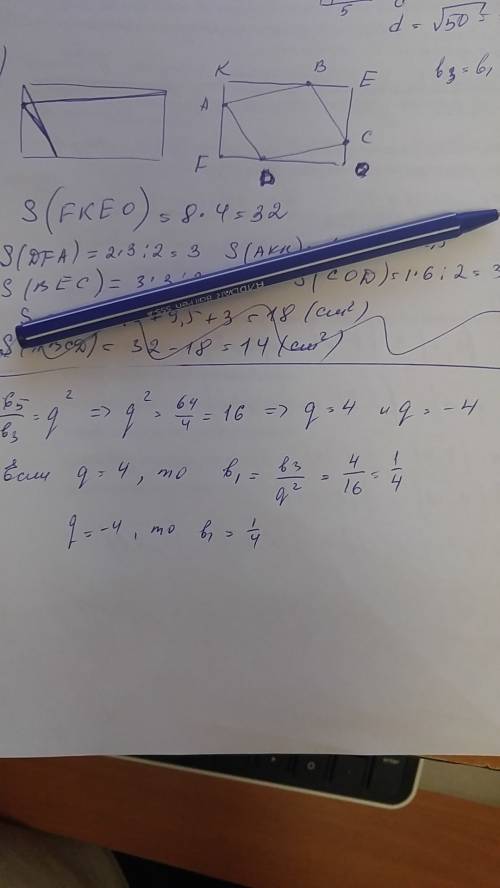 5
d = √50
b₃ = b₁
K B E
A
C
F D O
S(FKEO) = 8·4 = 32
S(DFA) = 2·3:2 = 3 S(AKB)
S(BEC) = 3·3: S(COD) = 1·6:2 = 3
S 9,5 + 3 = 18 (cm²)
CD) = 32 - 18 = 14 (cm²)
b₅/b₃ = q² => q² = 64/4 = 16 => q = 4 и q = -4
Если q = 4, то b₁ = b₃/q² = 4/16 = 1/4
q = -4, то b₁ = 1/4